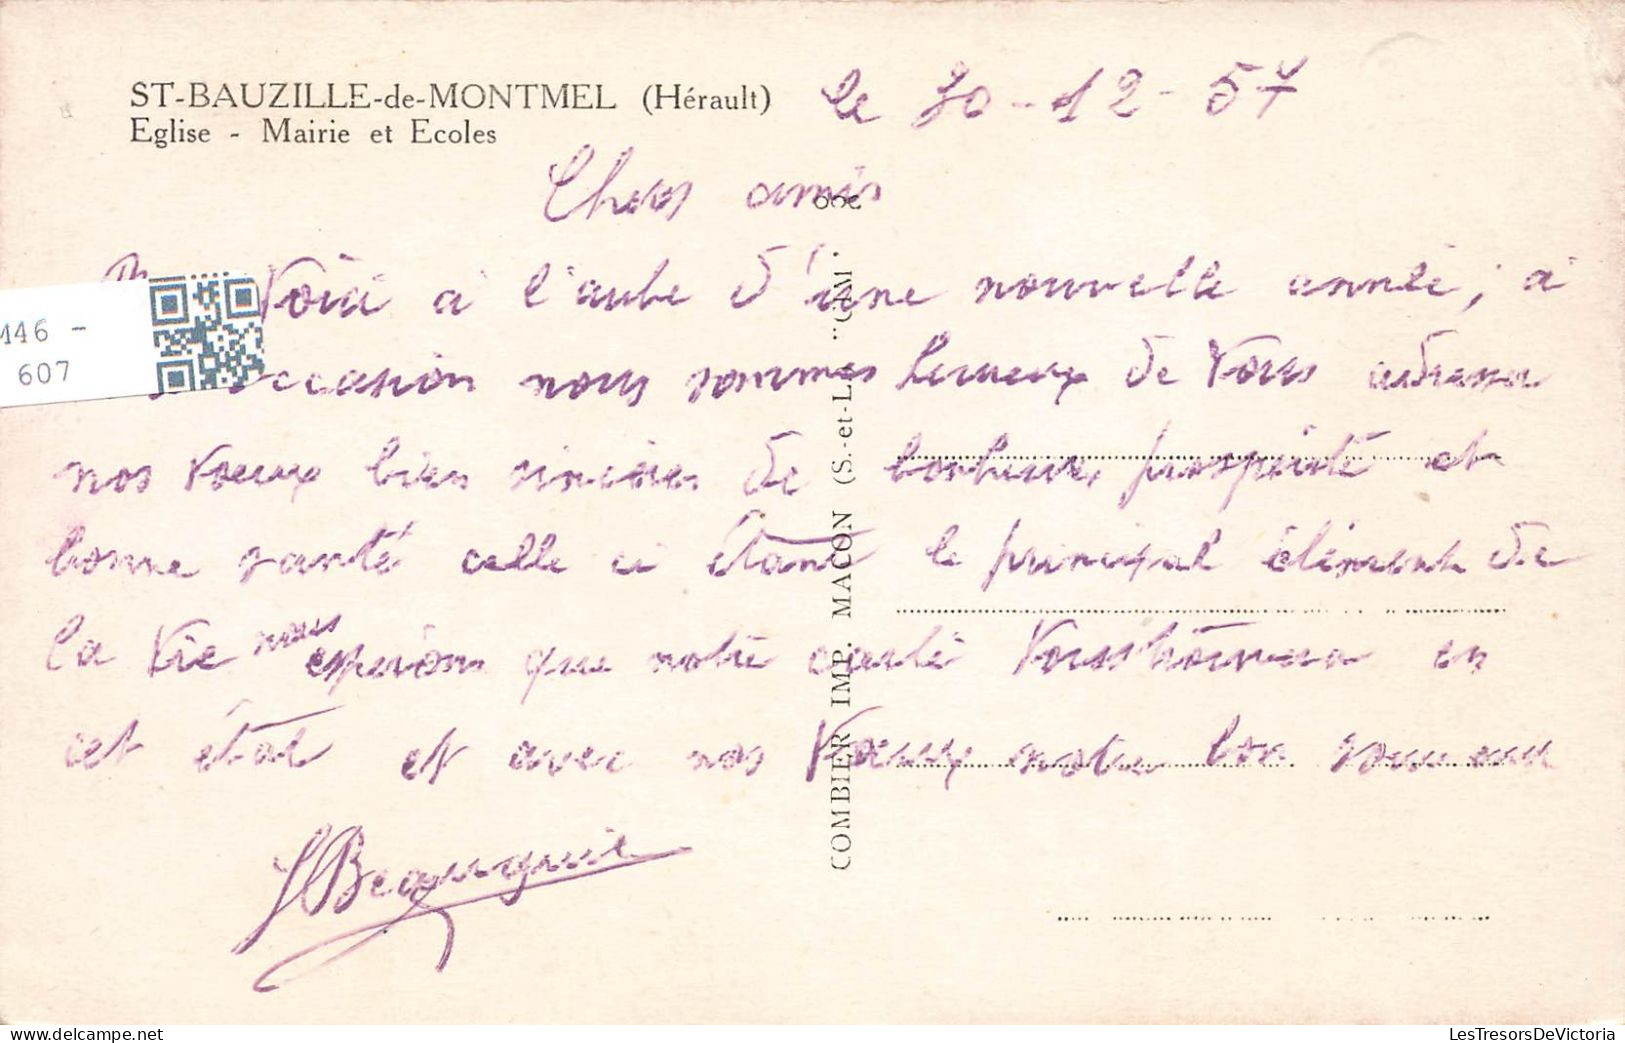 ST-BAUZILLE-de-MONTMEL (Hérault)
Eglise - Mairie et Ecoles
le 30-12-57
Chers amis
Voici à l'aube d'une nouvelle année, à
occasion nous sommes heureux de vous adresser
nos voeux bien sincères de bonheur, prospérité et
bonne santé celle ci étant le principal élément de
la vie nous espérons que notre carte vous trouvera en
cet état et avec nos voeux notre bon souvenir
COMBIER IMP. MACON (S.-et-L.) "CIM"
146 -
607
LesTresorsDeVictoria